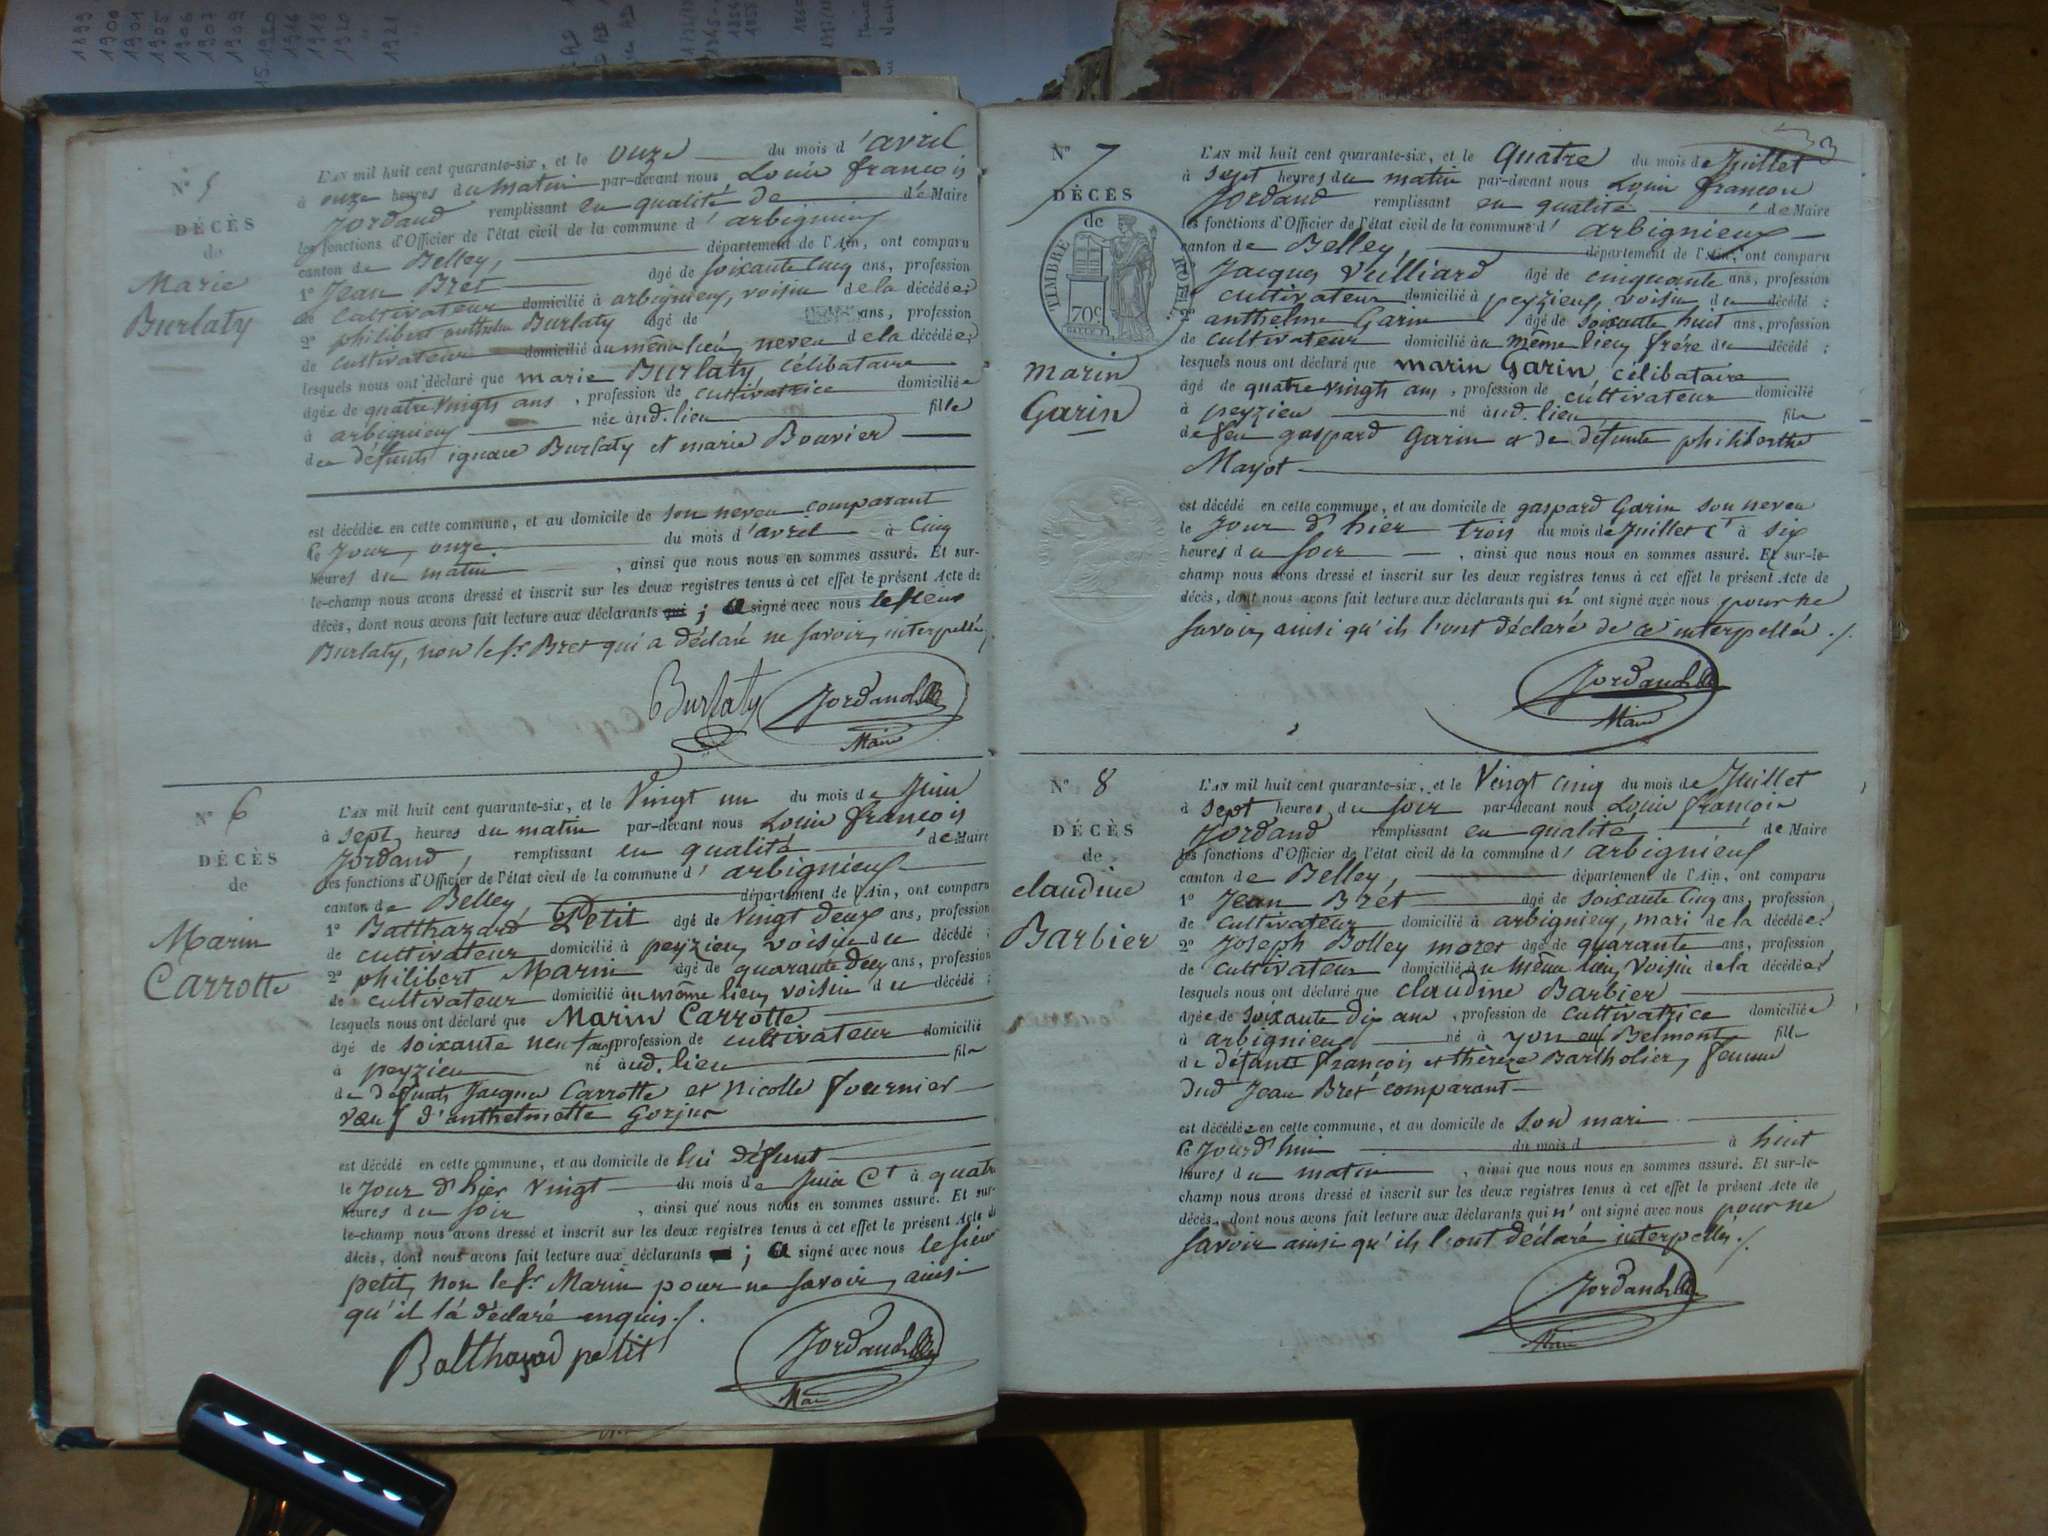 N° 5
DÉCÈS
de
Marie
Burlaty
L'AN mil huit cent quarante-six, et le onze du mois d'avril
à onze heures du matin par-devant nous Louis françois
Jordand remplissant en qualité de de Maire
les fonctions d'Officier de l'état civil de la commune d'arbignieu
canton de Belley, département de l'Ain, ont comparu
1° Jean Bret âgé de soixante cinq ans, profession
de cultivateur domicilié à arbignieu, voisin de la décédée;
2° philibert anthelme Burlaty âgé de ans, profession
de cultivateur domicilié au même lieu, neveu de la décédée;
lesquels nous ont déclaré que marie Burlaty, célibataire
âgée de quatre vingts ans, profession de cultivatrice domiciliée
à arbignieu née aud. lieu fille
des défunts ignace Burlaty et marie Bouvier
est décédée en cette commune, et au domicile de son neveu comparant
le jour, onze du mois d'avril à cinq
heures du matin, ainsi que nous nous en sommes assuré. Et sur-
le-champ nous avons dressé et inscrit sur les deux registres tenus à cet effet le présent Acte de
décès, dont nous avons fait lecture aux déclarants qui ; a signé avec nous le sieur
Burlaty, non le sr. Bret qui a déclaré ne savoir, interpellé,
Burlaty Jordand
Maire
N° 6
DÉCÈS
de
Marin
Carrotte
L'AN mil huit cent quarante-six, et le Vingt un du mois de Juin
à sept heures du matin par-devant nous Louis françois
Jordand, remplissant en qualité de Maire
les fonctions d'Officier de l'état civil de la commune d'arbignieu
canton de Belley, département de l'Ain, ont comparu
1° Balthazard Petit âgé de vingt deux ans, profession
de cultivateur domicilié à peyzieu, voisin du décédé;
2° philibert Marin âgé de quarante deux ans, profession
de cultivateur domicilié au même lieu, voisin du décédé;
lesquels nous ont déclaré que Marin Carrotte
âgé de soixante neuf ans, profession de cultivateur domicilié
à peyzieu né aud. lieu fils
des défunts Jacques Carrotte et Nicolle fournier
veuf d'anthelmette Gorjus
est décédé en cette commune, et au domicile de lui défunt
le jour d'hier vingt du mois de Juin Ct à quatre
heures du soir, ainsi que nous nous en sommes assuré. Et sur-
le-champ nous avons dressé et inscrit sur les deux registres tenus à cet effet le présent Acte de
décès, dont nous avons fait lecture aux déclarants ; a signé avec nous le sieur
petit, non le sr. Marin pour ne savoir, ainsi
qu'il l'a déclaré enquis./.
Balthazard petit Jordand
Maire
33
N° 7
DÉCÈS
de
TIMBRE ROYAL
70c
marin
Garin
L'AN mil huit cent quarante-six, et le quatre du mois de Juillet
à sept heures du matin par-devant nous Louis françois
Jordand remplissant en qualité de Maire
les fonctions d'Officier de l'état civil de la commune d'arbignieu
canton de Belley, département de l'Ain, ont comparu
Jacques Vulliard âgé de cinquante ans, profession
cultivateur domicilié à peyzieu, voisin du décédé;
anthelme Garin âgé de soixante huit ans, profession
de cultivateur domicilié au même lieu, frère du décédé;
lesquels nous ont déclaré que marin Garin célibataire
âgé de quatre vingts ans, profession de cultivateur domicilié
à peyzieu né aud. lieu fils
de feu gaspard Garin et de défunte philiberthe
Mayot
est décédé en cette commune, et au domicile de gaspard Garin son neveu
le Jour d'hier trois du mois de Juillet Ct à six
heures du soir, ainsi que nous nous en sommes assuré. Et sur-le-
champ nous avons dressé et inscrit sur les deux registres tenus à cet effet le présent Acte de
décès, dont nous avons fait lecture aux déclarants qui n'ont signé avec nous pour ne
savoir, ainsi qu'ils l'ont déclaré de ce interpellés./.
Jordand
Maire
N° 8
DÉCÈS
de
claudine
Barbier
L'AN mil huit cent quarante-six, et le Vingt cinq du mois de Juillet
à sept heures du soir par-devant nous Louis françois
Jordand remplissant en qualité de Maire
les fonctions d'Officier de l'état civil de la commune d'arbignieu
canton de Belley, département de l'Ain, ont comparu
1° Jean Bret âgé de soixante cinq ans, profession
de cultivateur domicilié à arbignieu, mari de la décédée;
2° Joseph Bolley moret âgé de quarante ans, profession
de cultivateur domicilié au même lieu, voisin de la décédée;
lesquels nous ont déclaré que claudine Barbier
âgée de soixante dix ans, profession de cultivatrice domiciliée
à arbignieu né à yon en Belmont fille
de défunts françois et thérèze Bartholier, femme
dud Jean Bret comparant
est décédée en cette commune, et au domicile de son mari
le Jourd'hui du mois d à huit
heures du matin, ainsi que nous nous en sommes assuré. Et sur-le-
champ nous avons dressé et inscrit sur les deux registres tenus à cet effet le présent Acte de
décès, dont nous avons fait lecture aux déclarants qui n'ont signé avec nous pour ne
savoir ainsi qu'ils l'ont déclaré interpellés./.
Jordand
Maire